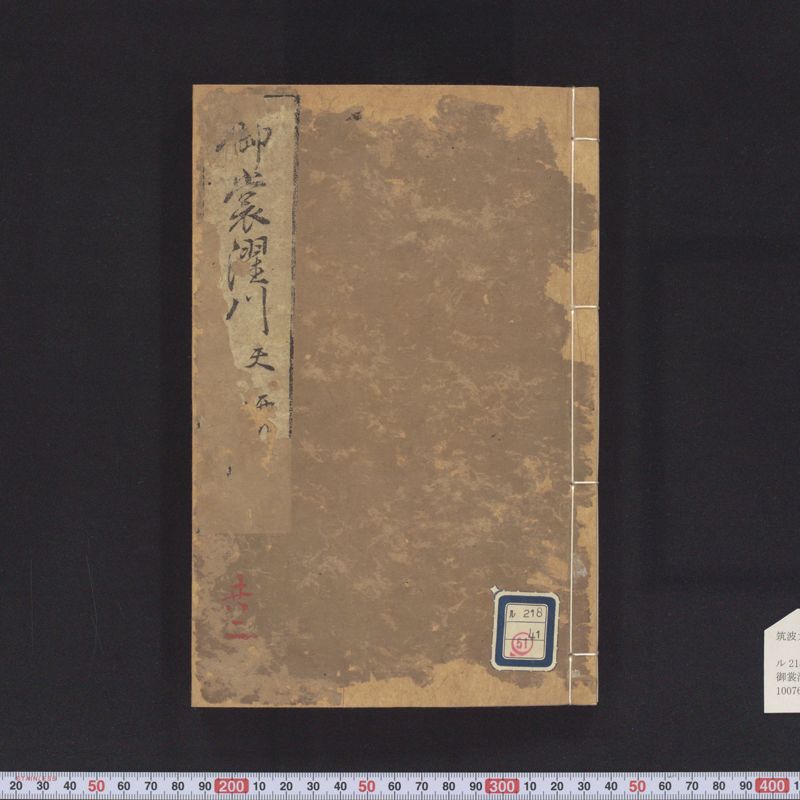 御裳濯川 天
廿二
ル 218
41
51
筑波
ル 21
御裳
10076
STAINLESS
20 30 40 50 60 70 80 90 200 10 20 30 40 50 60 70 80 90 300 10 20 30 40 50 60 70 80 90 400